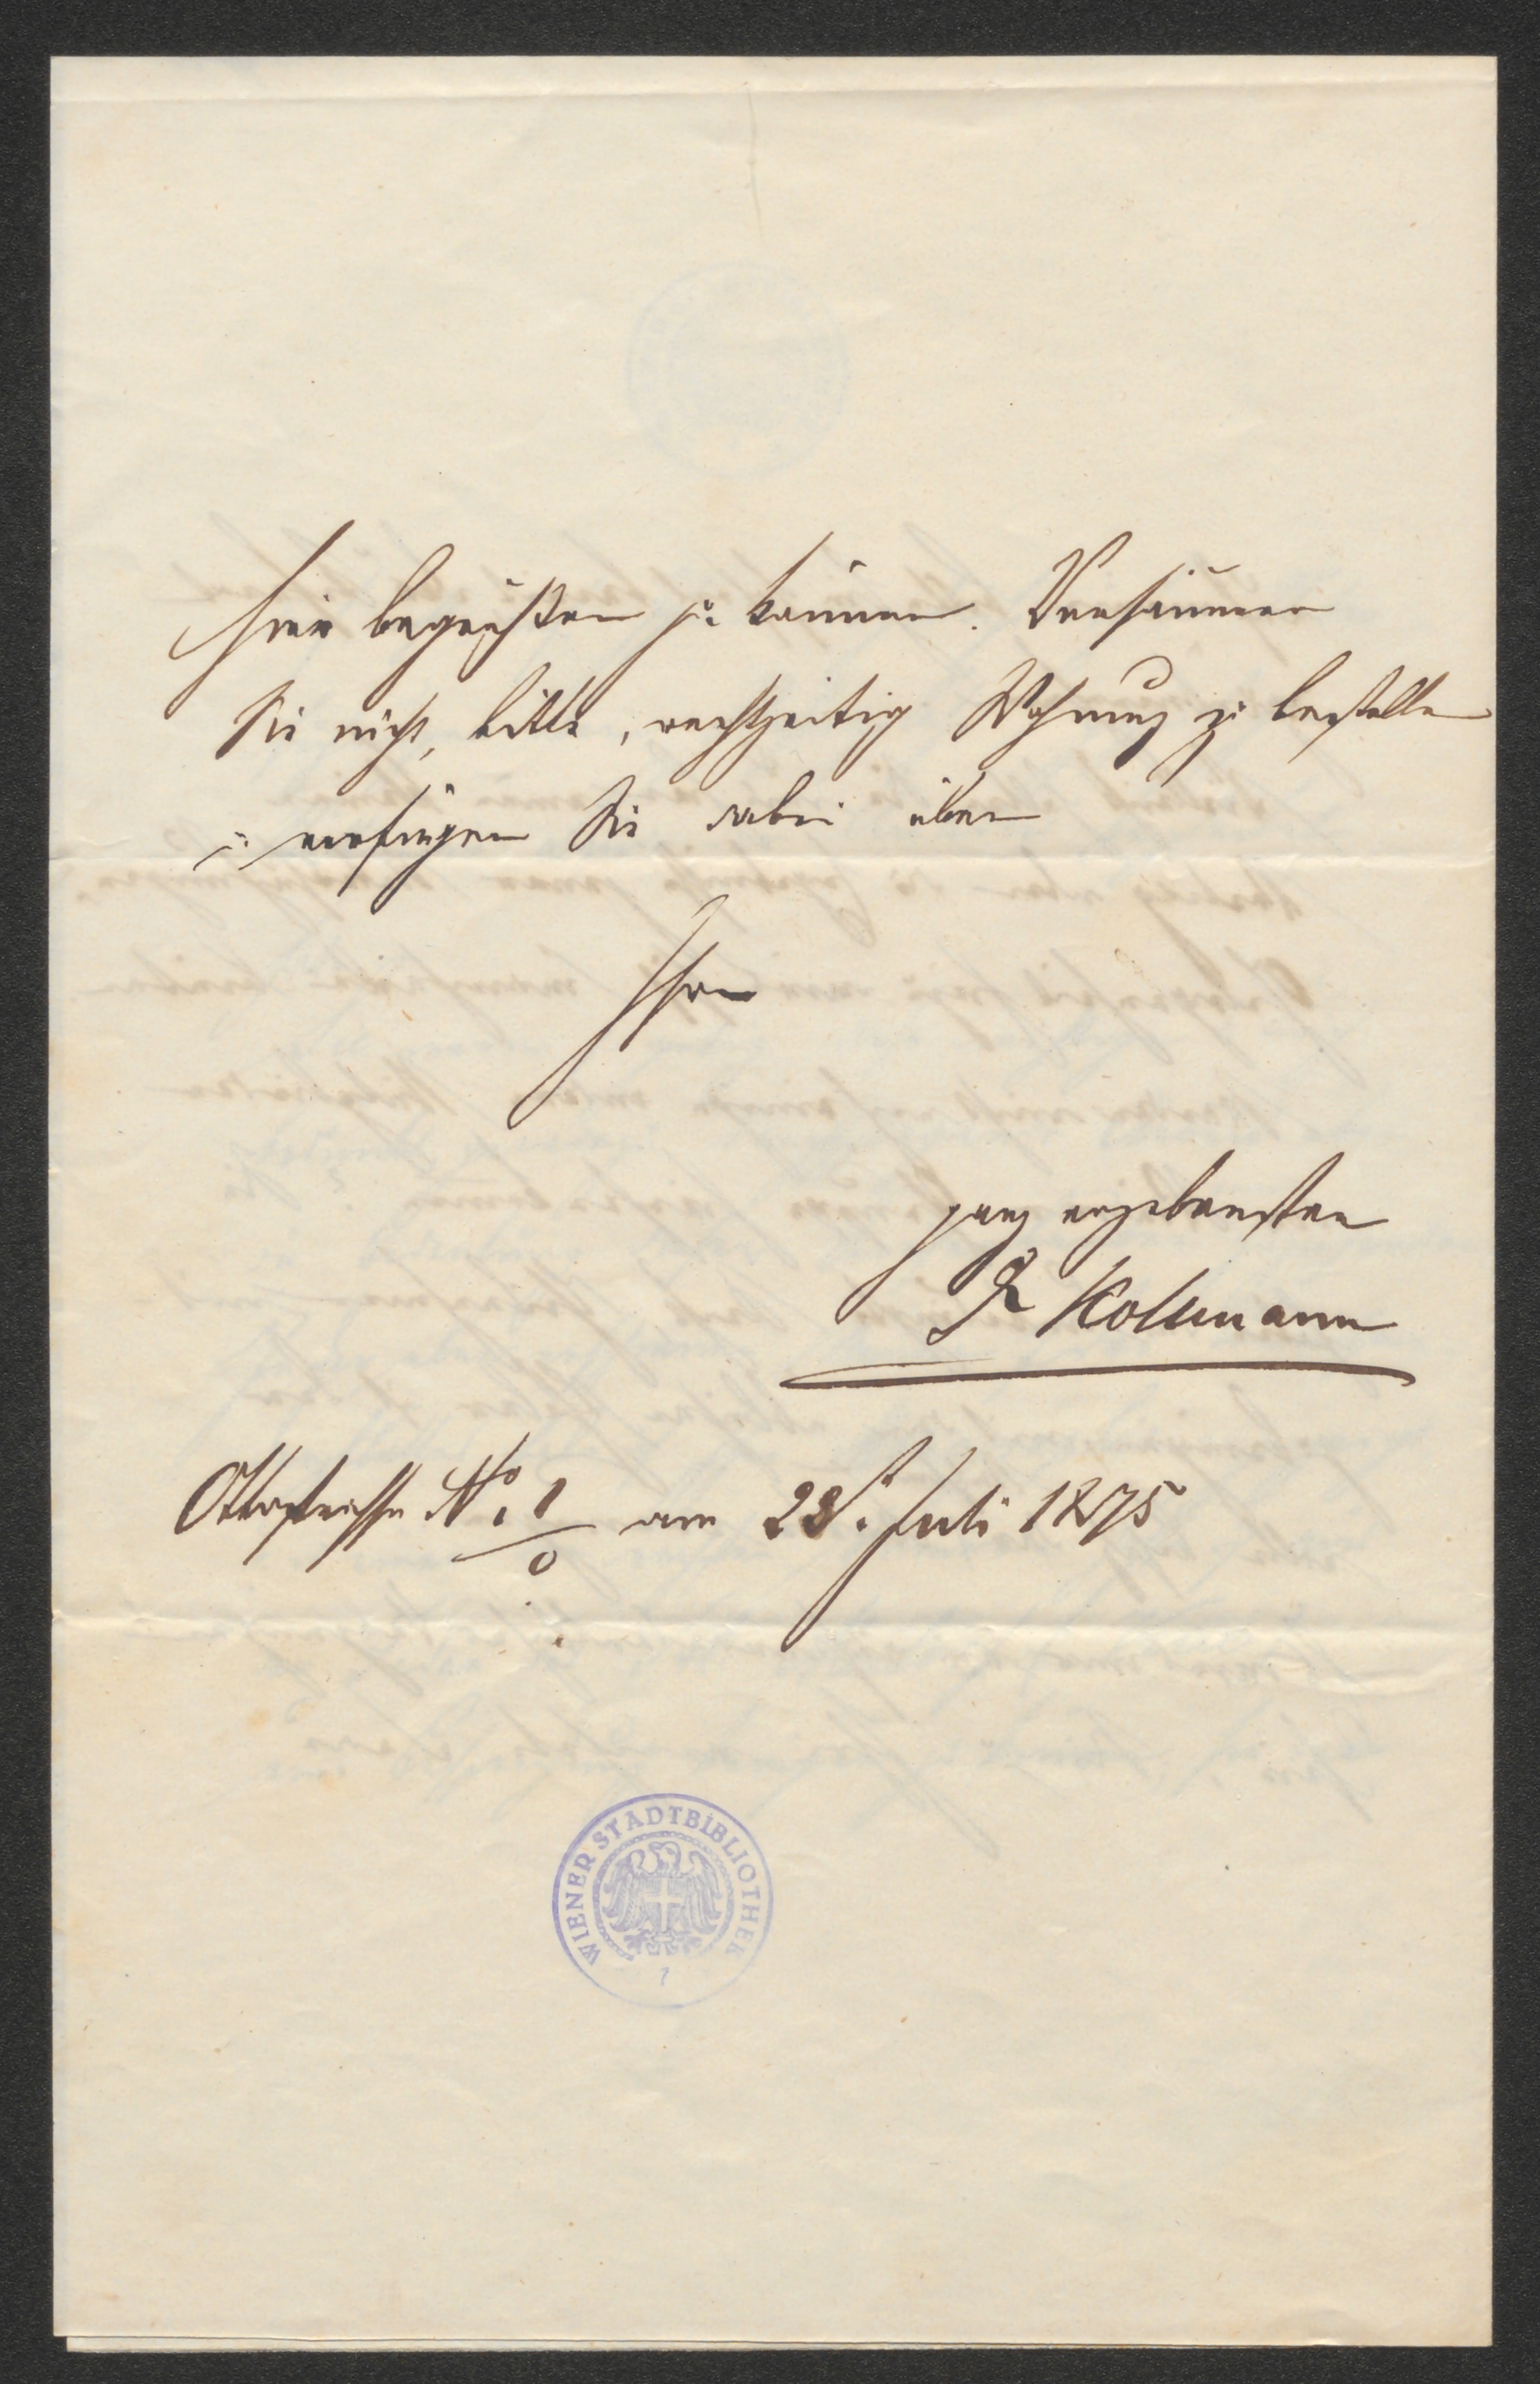 hier begrüßen zu können. Versäumen
Sie nicht, bitte, rechtzeitig Wohnung zu bestellen
u verfügen Sie dabei über
Ihren
ganz ergebensten
Kollmann
Ottostrasse No. 1/0 am 28. Juli 1875
WIENER STADTBIBLIOTHEK